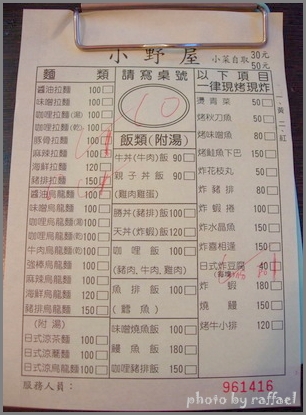 小野屋
小菜自取 30元
50元
麵 類
醬油拉麵 100
味噌拉麵 100
咖哩拉麵(湯) 100
咖哩拉麵(乾) 100
豚骨拉麵 100
麻辣拉麵 100
海鮮拉麵 120
豬排拉麵 150
醬油烏龍麵 100
味噌烏龍麵 100
咖哩烏龍麵(湯) 100
咖哩烏龍麵(乾) 100
牛肉烏龍麵(乾) 100
強棒烏龍麵 100
麻辣烏龍麵 100
海鮮烏龍麵 120
豬排烏龍麵 150
(附 湯)
日式涼麵 100
日式涼蕎麵 100
日式涼烏龍 100
請寫桌號
10
飯類(附湯)
牛丼(牛肉)飯 90
親子丼飯 90
(雞肉雞蛋)
勝丼(豬排)飯 100
天丼(炸蝦)飯 120
咖哩飯 100
(豬肉,牛肉,雞肉)
魚排飯 100
(鱈魚)
味噌燒魚飯 100
鰻魚飯 180
咖哩豬排飯 150
以下項目
一律現烤現炸
燙青菜 50
烤秋刀魚 50
烤味噌魚 80
烤鮭魚下巴 150
炸花枝丸 50
炸豬排 80
炸蝦捲 50
炸水晶魚 50
炸喜相逢 50
日式炸豆腐 40
炸蝦 180
燒鰻 180
烤牛小排 120
服務人員:
961416
photo by raffael